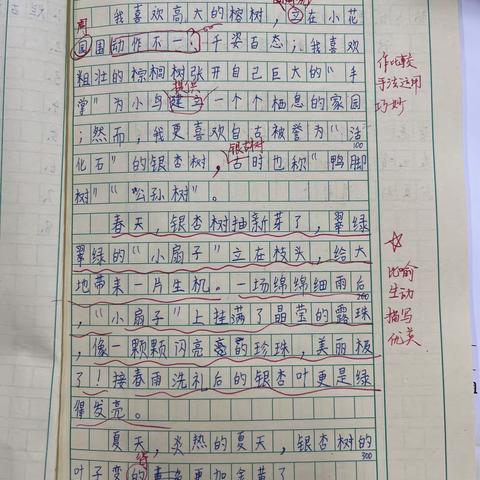 我喜欢高大的棕树，立在小花
周
园围动作不一，千姿百态；我喜欢
粗壮的棕榈树张开自己巨大的“手
提供
掌”为小鸟建立一个个栖息的家园
；然而，我更喜欢自古被誉为“活
银杏树
100
化石”的银杏树，古时也称“鸭脚
树”“公孙树”。
春天，银杏树抽新芽了，翠绿
翠绿的“小扇子”立在枝头，给大
地带来一片生机。一场绵绵细雨后
200
，“小扇子”上挂满了晶莹的露珠
，像一颗颗闪亮的珍珠，美丽极
了！接春雨洗礼后的银杏叶更是绿
得发亮。
夏天，炎热的夏天，银杏树的
300
得
叶子变的更加金黄了
作比较
手法运用
巧妙
比喻
生动
描写
优美